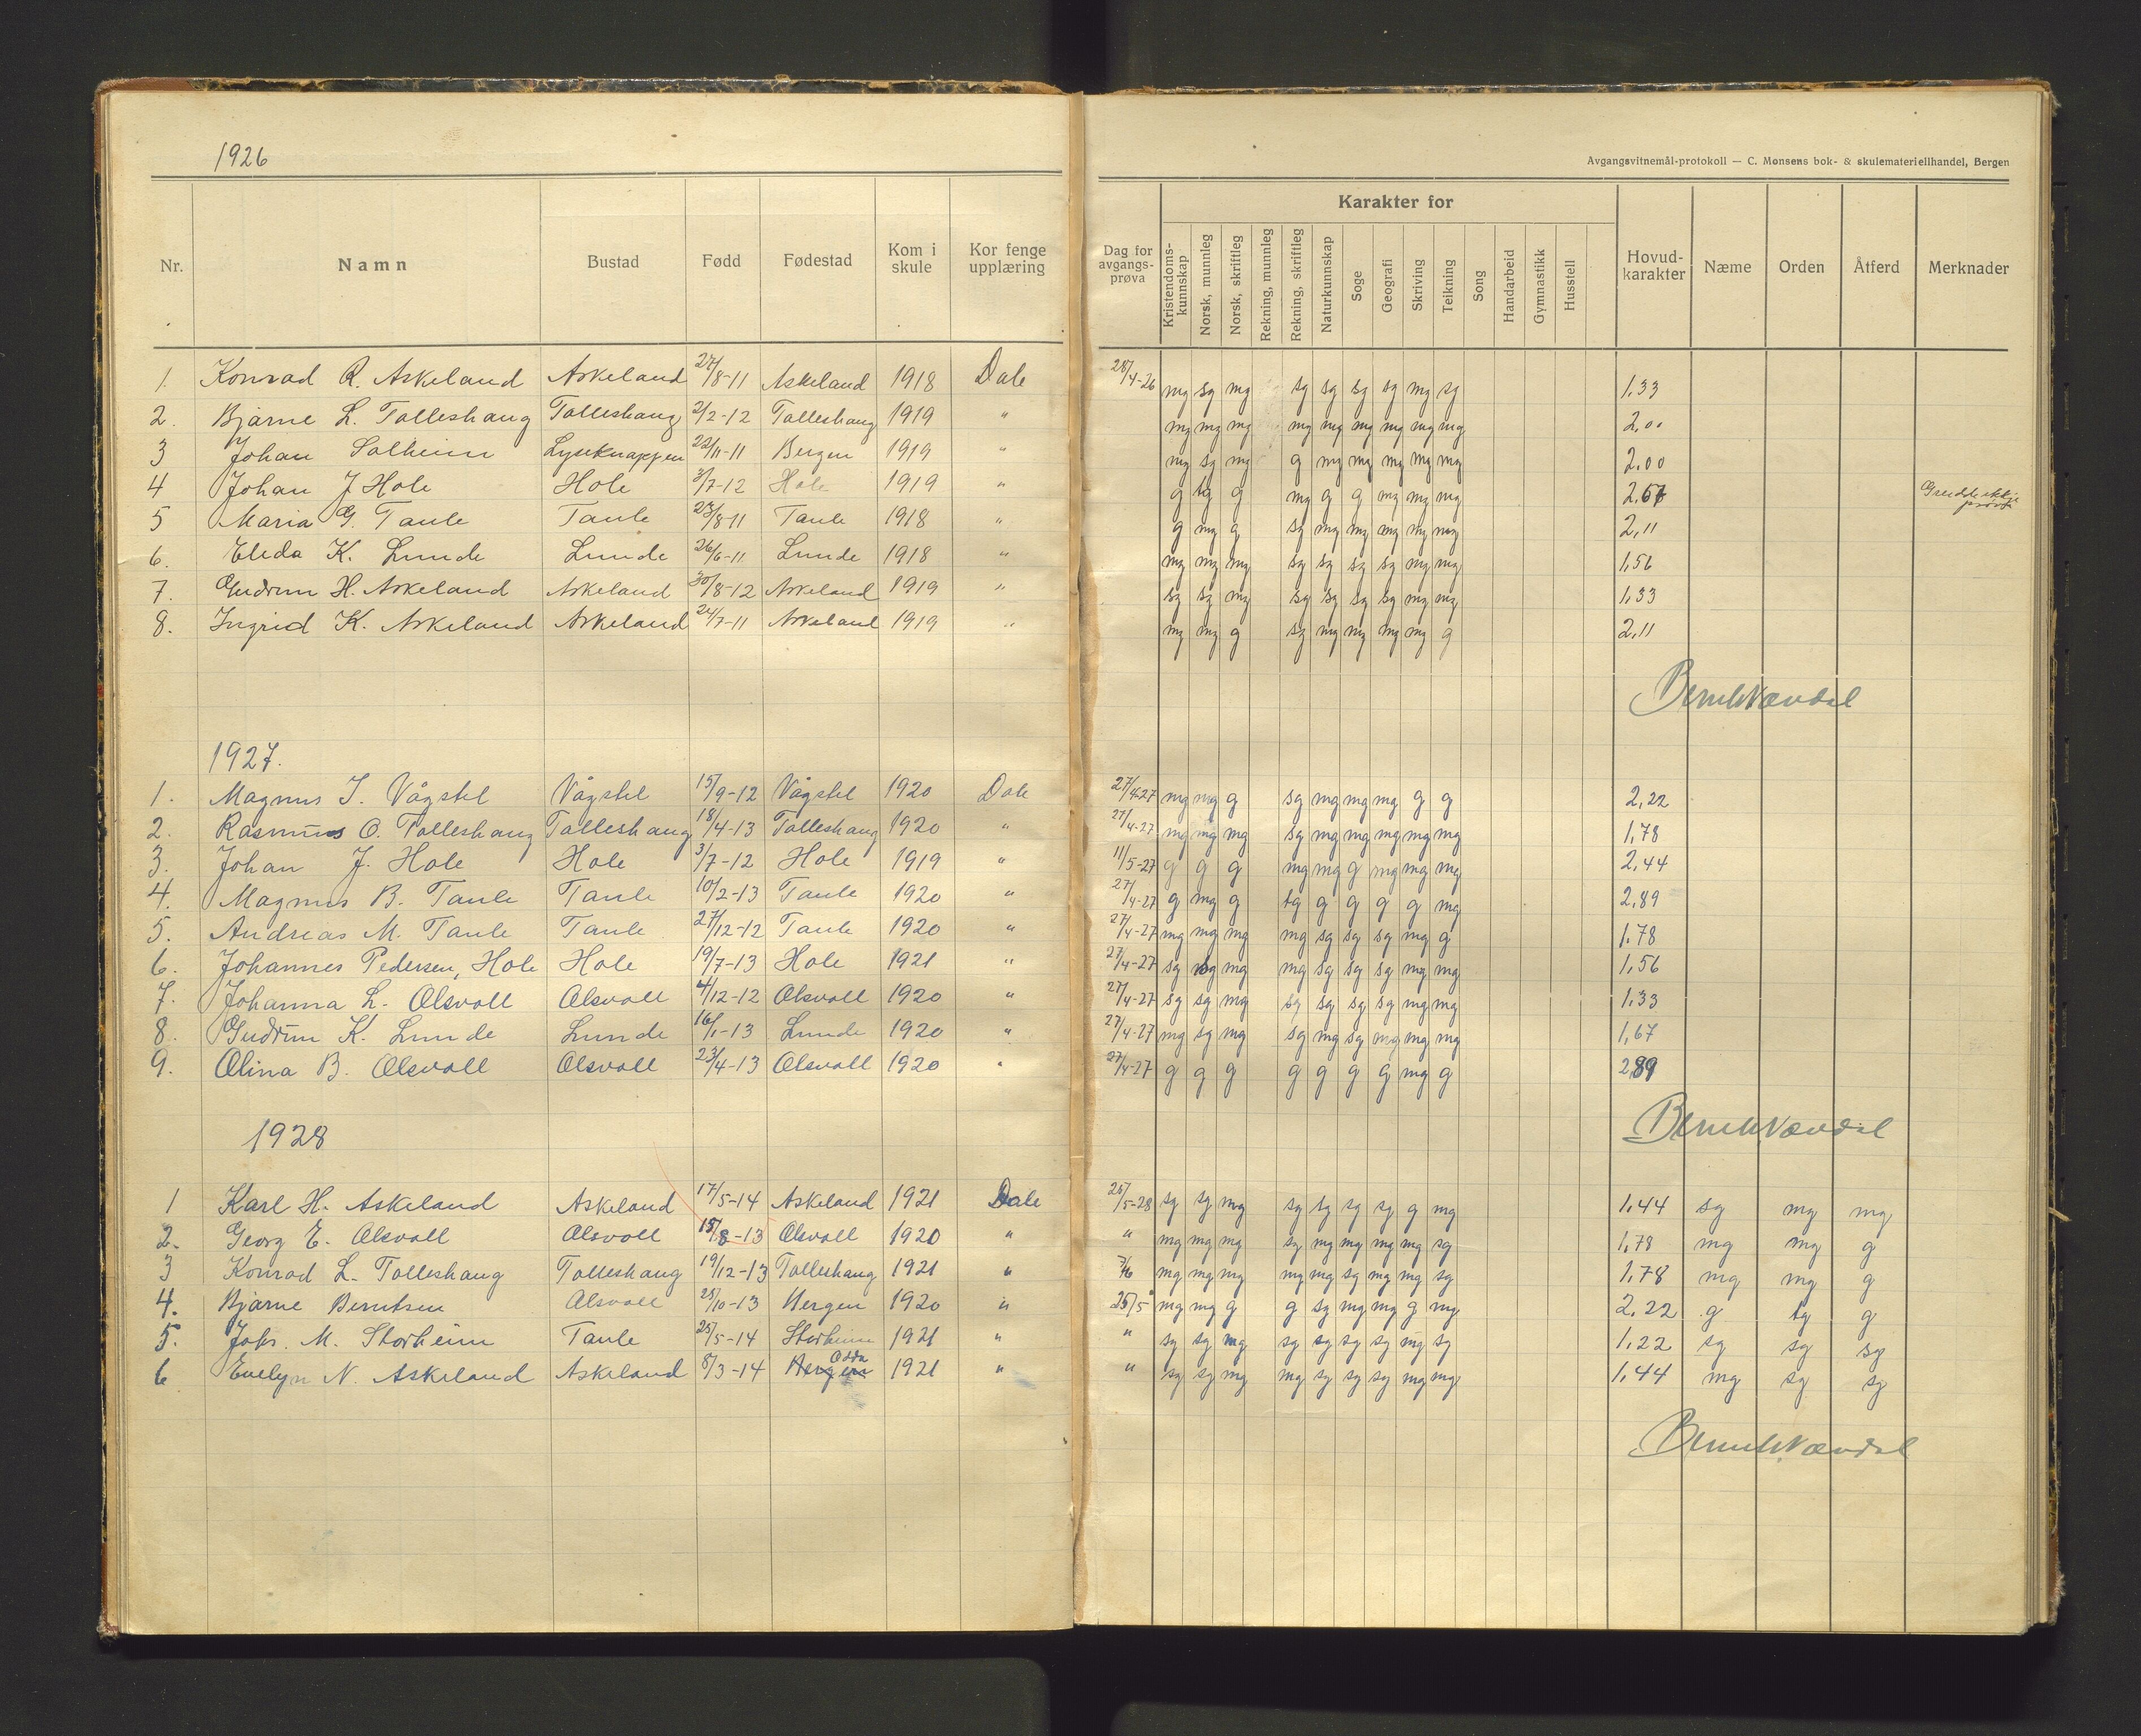 1926
Avgangsvitnemål-protokoll — C. Monsens bok- & skulemateriellhandel, Bergen
Nr. Namn Bustad Fødd Fødestad Kom i skule Kor fenge upplæring Dag for avgangs-prøva Karakter for Kristendoms-kunnskap Norsk, munnleg Norsk, skriftleg Rekning, munnleg Rekning, skriftleg Naturkunnskap Soge Geografi Skriving Teikning Song Handarbeid Gymnastikk Husstell Hovud-karakter Næme Orden Åtferd Merknader
1. Konrad R. Askeland Askeland 27/8-11 Askeland 1918 Dale 28/4-26 mg sg mg sg sg sg sg mg sg 1,33
2. Bjarne L. Tolleshaug Tolleshaug 2/2-12 Tolleshaug 1919 " mg mg mg mg mg mg mg mg mg 2,00
3 Johan Solheim Lyseknappen 22/11-11 Bergen 1919 " mg sg mg g mg mg mg mg mg 2,00
4 Johan J Hole Hole 3/7-12 Hole 1919 " g tg g mg g g mg mg mg 2,67
5 Maria G. Taule Taule 23/8-11 Taule 1918 " g mg g sg mg mg mg mg mg 2,11
6. Elida K. Lunde Lunde 26/6-11 Lunde 1918 " mg mg mg sg sg sg sg mg mg 1,56
7. Gudrun H. Askeland Askeland 30/8-12 Askeland 1919 " sg sg mg sg sg sg sg mg mg 1,33
8. Ingrid K. Askeland Askeland 24/7-11 Askeland 1919 " mg mg g sg mg mg mg mg g 2,11
1927.
1. Magnus J. Vågstel Vågstel 15/9-12 Vågstel 1920 Dale 27/4-27 mg mg g sg mg mg mg g g 2,22
2. Rasmus O. Tolleshaug Tolleshaug 18/4-13 Tolleshaug 1920 " 27/4-27 mg mg mg sg mg mg mg mg mg 1,78
3. Johan J. Hole Hole 3/7-12 Hole 1919 " 11/5-27 g g g mg mg g mg mg mg 2,44
4. Magnus B. Taule Taule 10/2-13 Taule 1920 " 27/4-27 g mg g tg g g g g mg 2,89
5. Andreas M. Taule Taule 27/12-12 Taule 1920 " 27/4-27 mg mg mg mg sg sg sg mg g 1,78
6. Johannes Pedersen, Hole Hole 19/7-13 Hole 1921 " 27/4-27 sg sg mg mg sg sg sg mg mg 1,56
7. Johanna L. Olsvoll Olsvoll 4/12-12 Olsvoll 1920 " 27/4-27 sg sg mg sg sg sg sg mg mg 1,33
8. Gudrun K. Lunde Lunde 16/1-13 Lunde 1920 " 27/4-27 mg sg mg sg mg sg mg mg mg 1,67
9. Olina B. Olsvoll Olsvoll 23/4-13 Olsvoll 1920 " 27/4-27 g g g g g g g mg g 2,89
1928
1 Karl H. Askeland Askeland 17/5-14 Askeland 1921 Dale 25/5-28 sg sg mg sg sg sg sg g mg 1,44 sg mg mg
2. Georg E. Olsvoll Olsvoll 15/8-13 Olsvoll 1920 " " mg mg mg sg mg mg mg mg sg 1,78 mg mg g
3 Konrad L. Tolleshaug Tolleshaug 19/12-13 Tolleshaug 1921 " 7/6 mg mg mg mg mg sg mg mg sg 1,78 mg mg g
4. Bjarne Berntsen Olsvoll 25/10-13 Bergen 1920 " 25/5 mg mg g g sg mg mg g mg 2,22 g tg g
5. Johs. M. Storheim Taule 25/5-14 Storheim 1921 " " sg sg mg sg sg sg sg mg sg 1,22 sg sg sg
6 Evelyn N. Askeland Askeland 8/3-14 Bergen Odda 1921 " " sg sg mg mg sg sg sg mg mg 1,44 mg sg sg